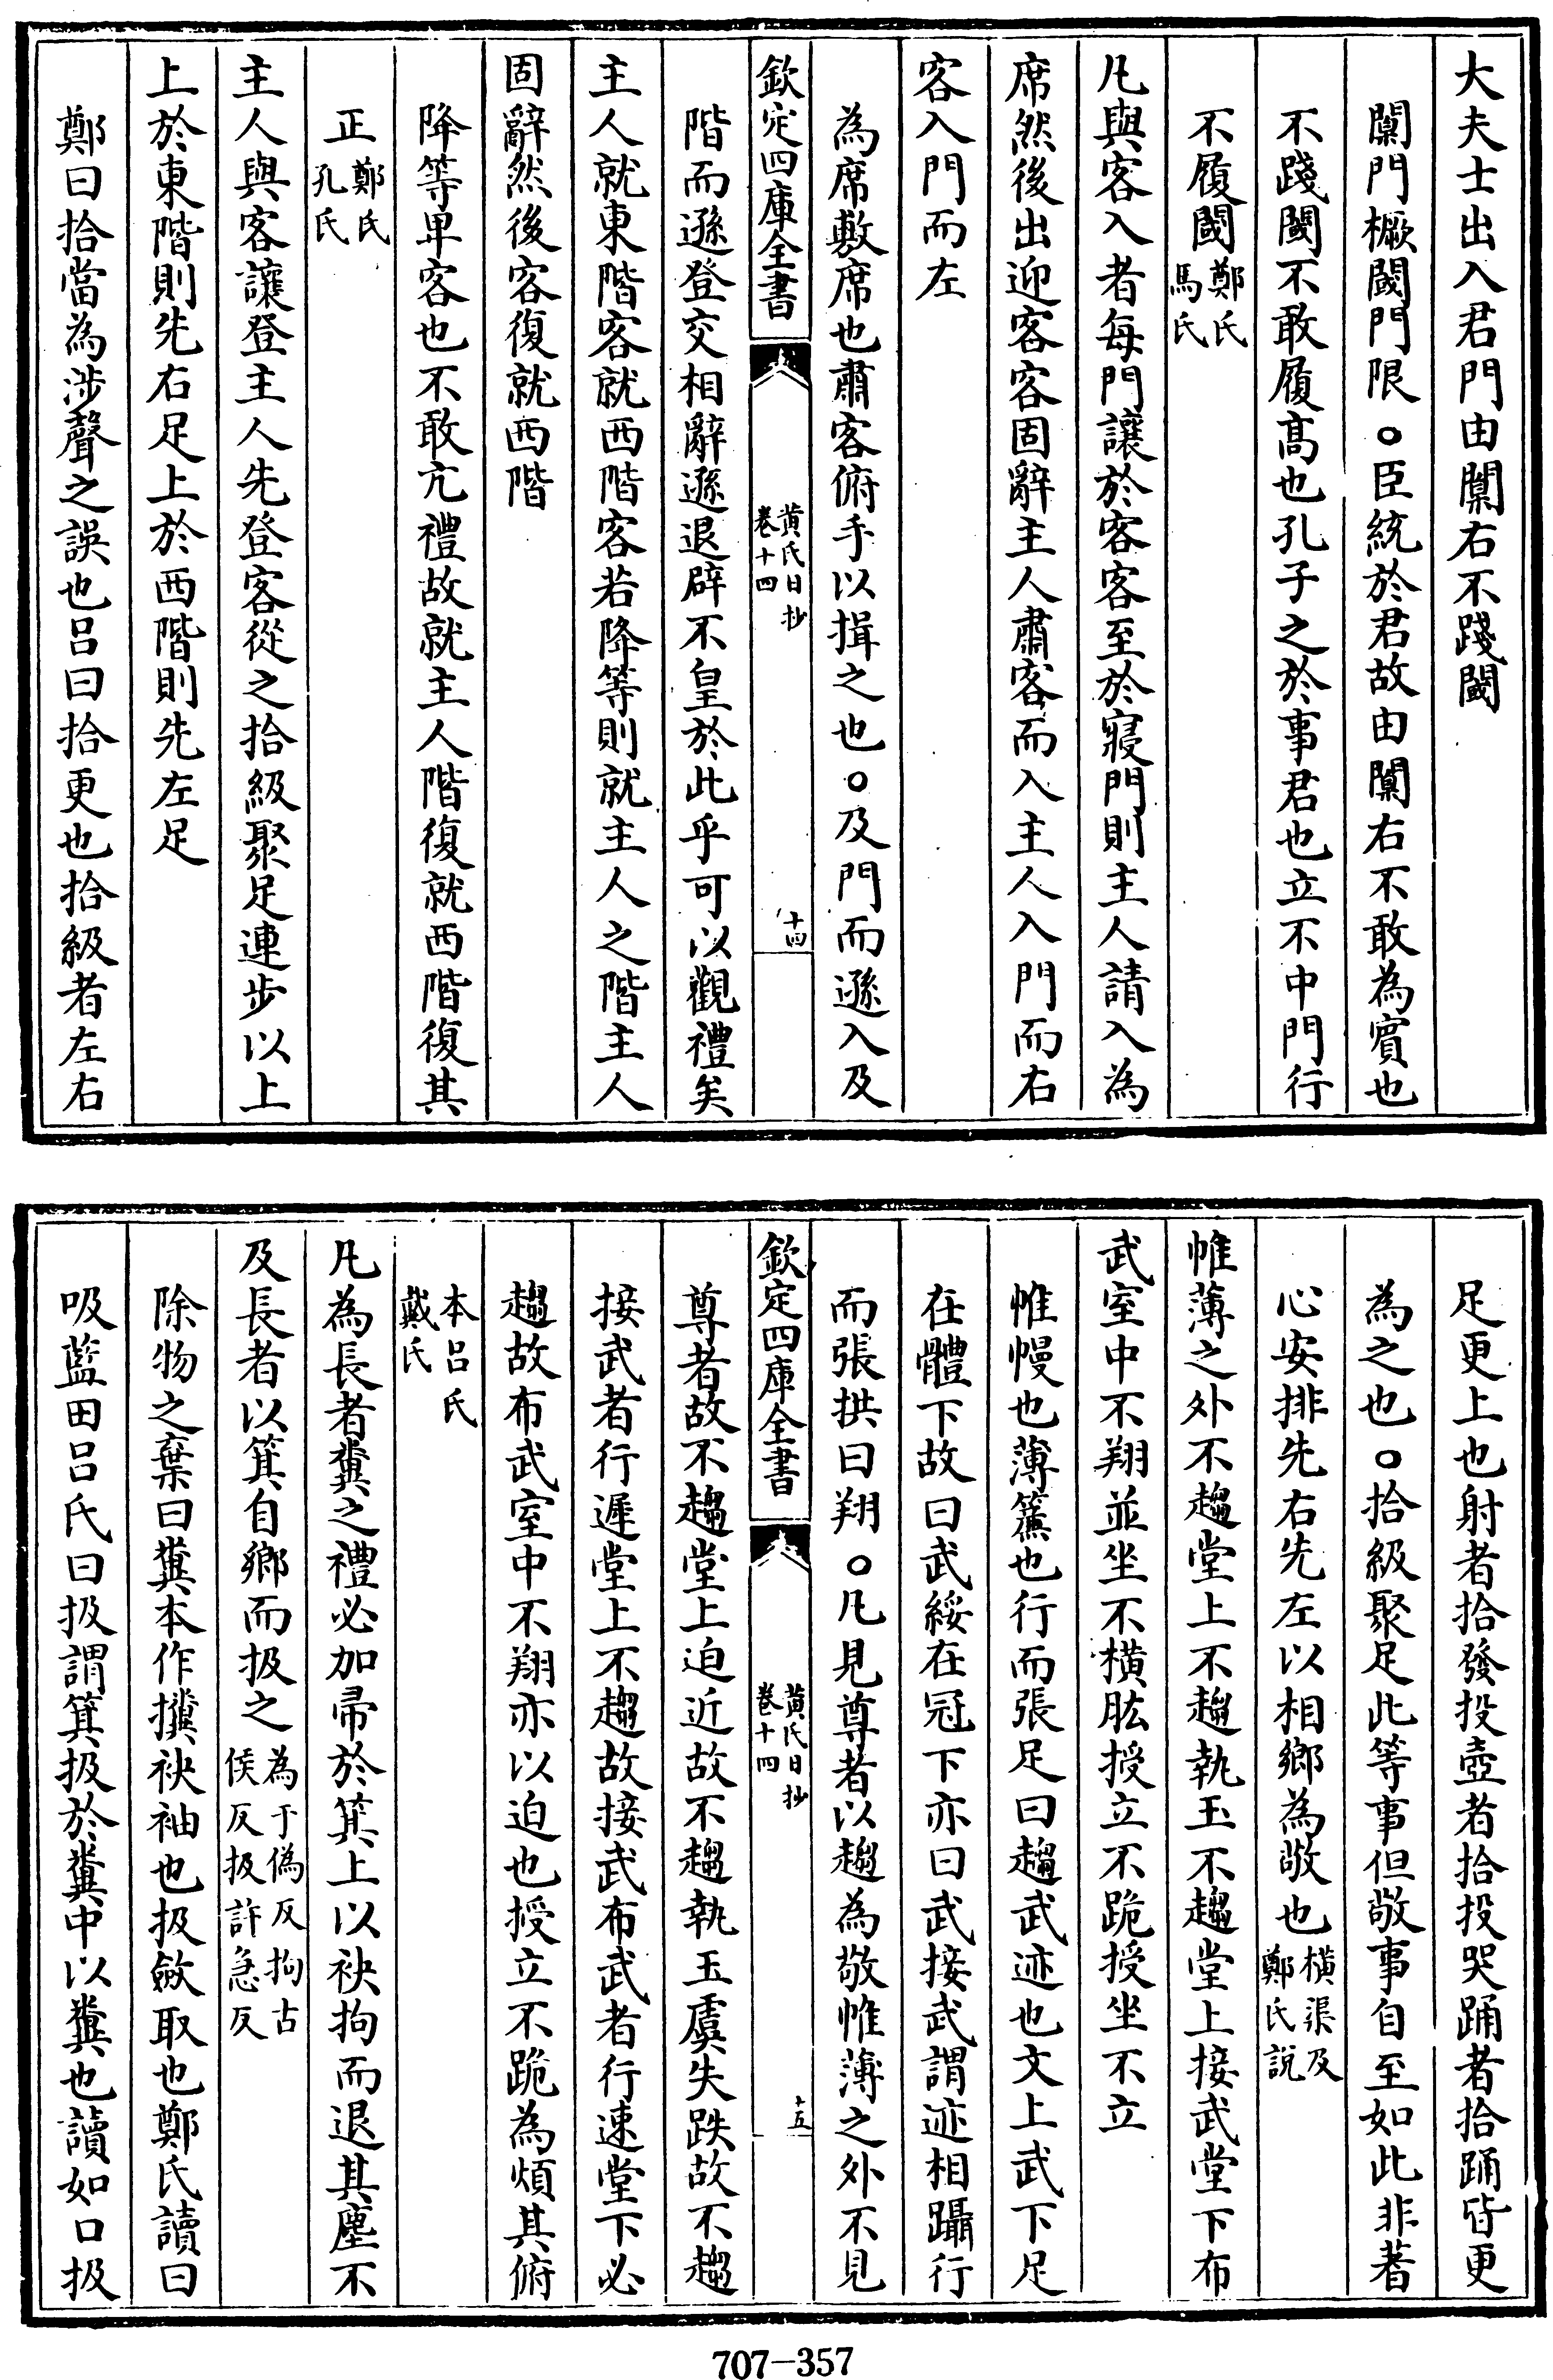 大夫士出入君門由闑右不踐閾
闑門橛閾門限○臣統於君故由闑右不敢為賓也
不踐閾不敢履髙也孔子之於事君也立不中門行
不履閾鄭氏
馬氏
凡與客入者每門讓於客客至於寢門則主人請入為
席然後出迎客客固辭主人肅客而入主人入門而右
客入門而左
為席敷席也肅客俯手以揖之也○及門而遜入及
欽定四庫全書
黄氏日抄
卷十四
十四
階而遜登交相辭遜退辟不皇於此乎可以觀禮矣
主人就東階客就西階客若降等則就主人之階主人
固辭然後客復就西階
降等卑客也不敢亢禮故就主人階復就西階復其
正鄭氏
孔氏
主人與客讓登主人先登客從之拾級聚足連步以上
上於東階則先右足上於西階則先左足
鄭曰拾當為涉聲之誤也呂曰拾更也拾級者左右
足更上也射者拾發投壺者拾投哭踊者拾踊皆更
為之也○拾級聚足此等事但敬事自至如此非著
心安排先右先左以相鄉為敬也横渠及
鄭氏說
帷薄之外不趨堂上不趨執玉不趨堂上接武堂下布
武室中不翔並坐不横肱授立不跪授坐不立
帷幔也薄簾也行而張足曰趨武迹也文上武下足
在體下故曰武綏在冠下亦曰武接武謂迹相躡行
而張拱曰翔○凡見尊者以趨為敬帷薄之外不見
欽定四庫全書
黄氏日抄
卷十四
十五
尊者故不趨堂上迫近故不趨執玉虞失跌故不趨
接武者行遲堂上不趨故接武布武者行速堂下必
趨故布武室中不翔亦以迫也授立不跪為煩其俯
本呂氏
戴氏
凡為長者糞之禮必加帚於箕上以袂拘而退其塵不
及長者以箕自鄉而扱之為于偽反拘古
侯反扱許急反
除物之棄曰糞本作㩛袂袖也扱斂取也鄭氏讀曰
吸藍田呂氏曰扱謂箕扱於糞中以糞也讀如口扱
707-357